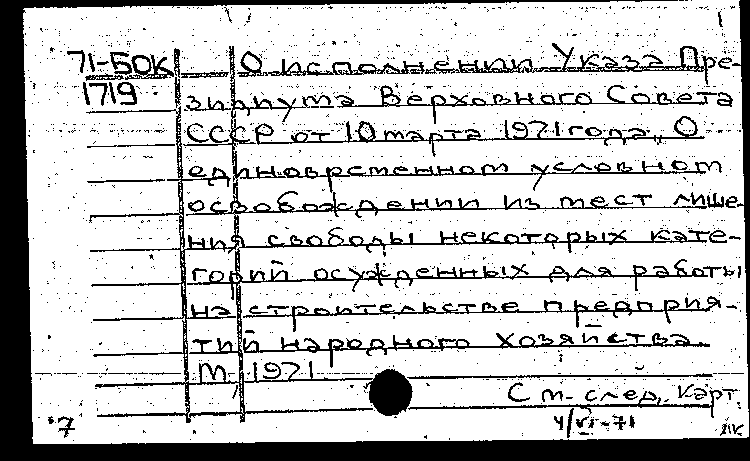 71-БОК О исполнении Указа Пре-
1719 зидиума Верховного Совета
СССР от 10 марта 1971 года „О
единовременном условном
освобождении из мест лише-
ния свободы некоторых кате-
горий осужденных для работы
на строительстве предприя-
тий народного хозяйства.
М 1971
См. след. карт.
*7 4/VI-71